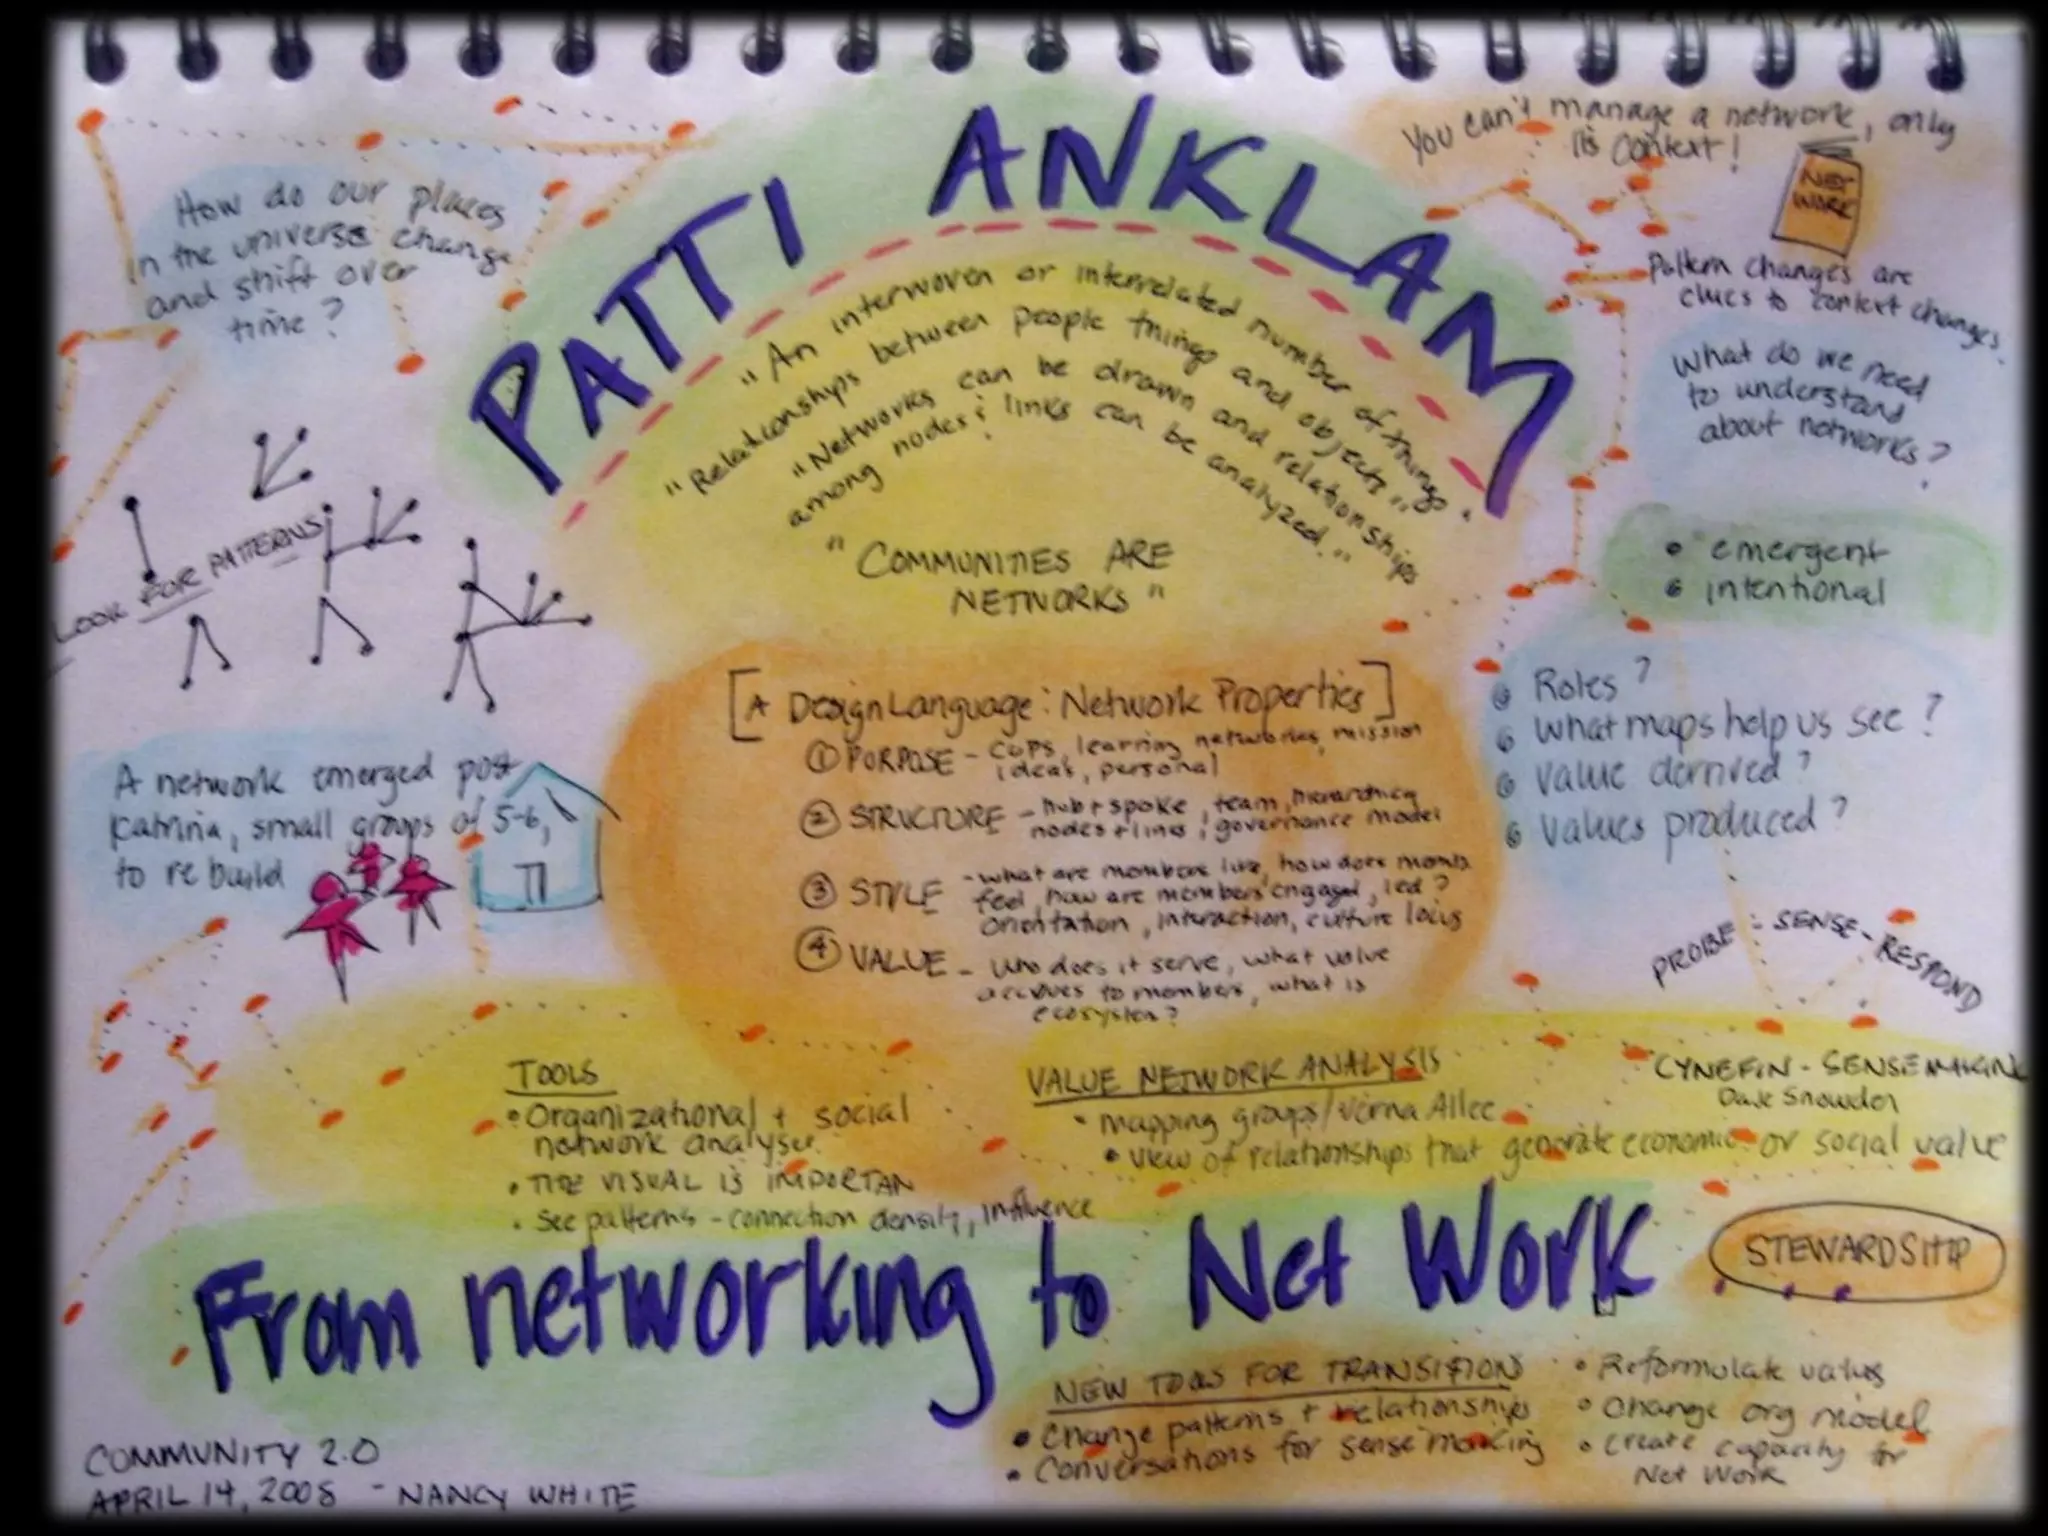 PATTI ANKLAM
You can't manage a network, only
its context!
NET
WORK
How do our places
in the universe change
and shift over
time?
Pattern changes are
clues to context changes.
"An interwoven or interrelated number of things.
"Relationships between people things and objects"
"Networks can be drawn and relationships
among nodes & links can be analyzed."
What do we need
to understand
about networks?
LOOK FOR PATTERNS
"COMMUNITIES ARE
NETWORKS"
• emergent
• intentional
[A Design Language: Network Properties]
① PURPOSE - COPS, learning networks, mission
ideas, personal
② STRUCTURE - hub + spoke, team, hierarchical
nodes + links, governance model
③ STYLE - what are members like, how does
feel, how are members engaged, led?
orientation, interaction, culture locus
④ VALUE - who does it serve, what value
accrues to members, what is
ecosystem?
• Roles?
• What maps help us see?
• Value derived?
• Values produced?
A network emerged post
Katrina, small groups of 5-6,
to rebuild
PROBE - SENSE - RESPOND
TOOLS
• Organizational + social
network analyser.
• THE VISUAL IS IMPORTAN
• See patterns - connection density, influence
VALUE NETWORK ANALYSIS
• mapping groups/Verna Allee
• view of relationships that generate economic or social value
CYNEFIN - SENSEMAKING
Dave Snowden
From networking to Net Work
STEWARDSHIP
NEW TOOLS FOR TRANSITION
• Change patterns + relationships
• Conversations for sense making
• Reformulate values
• Change org model
• Create capacity for
Net Work
COMMUNITY 2.0
APRIL 14, 2008 - NANCY WHITE